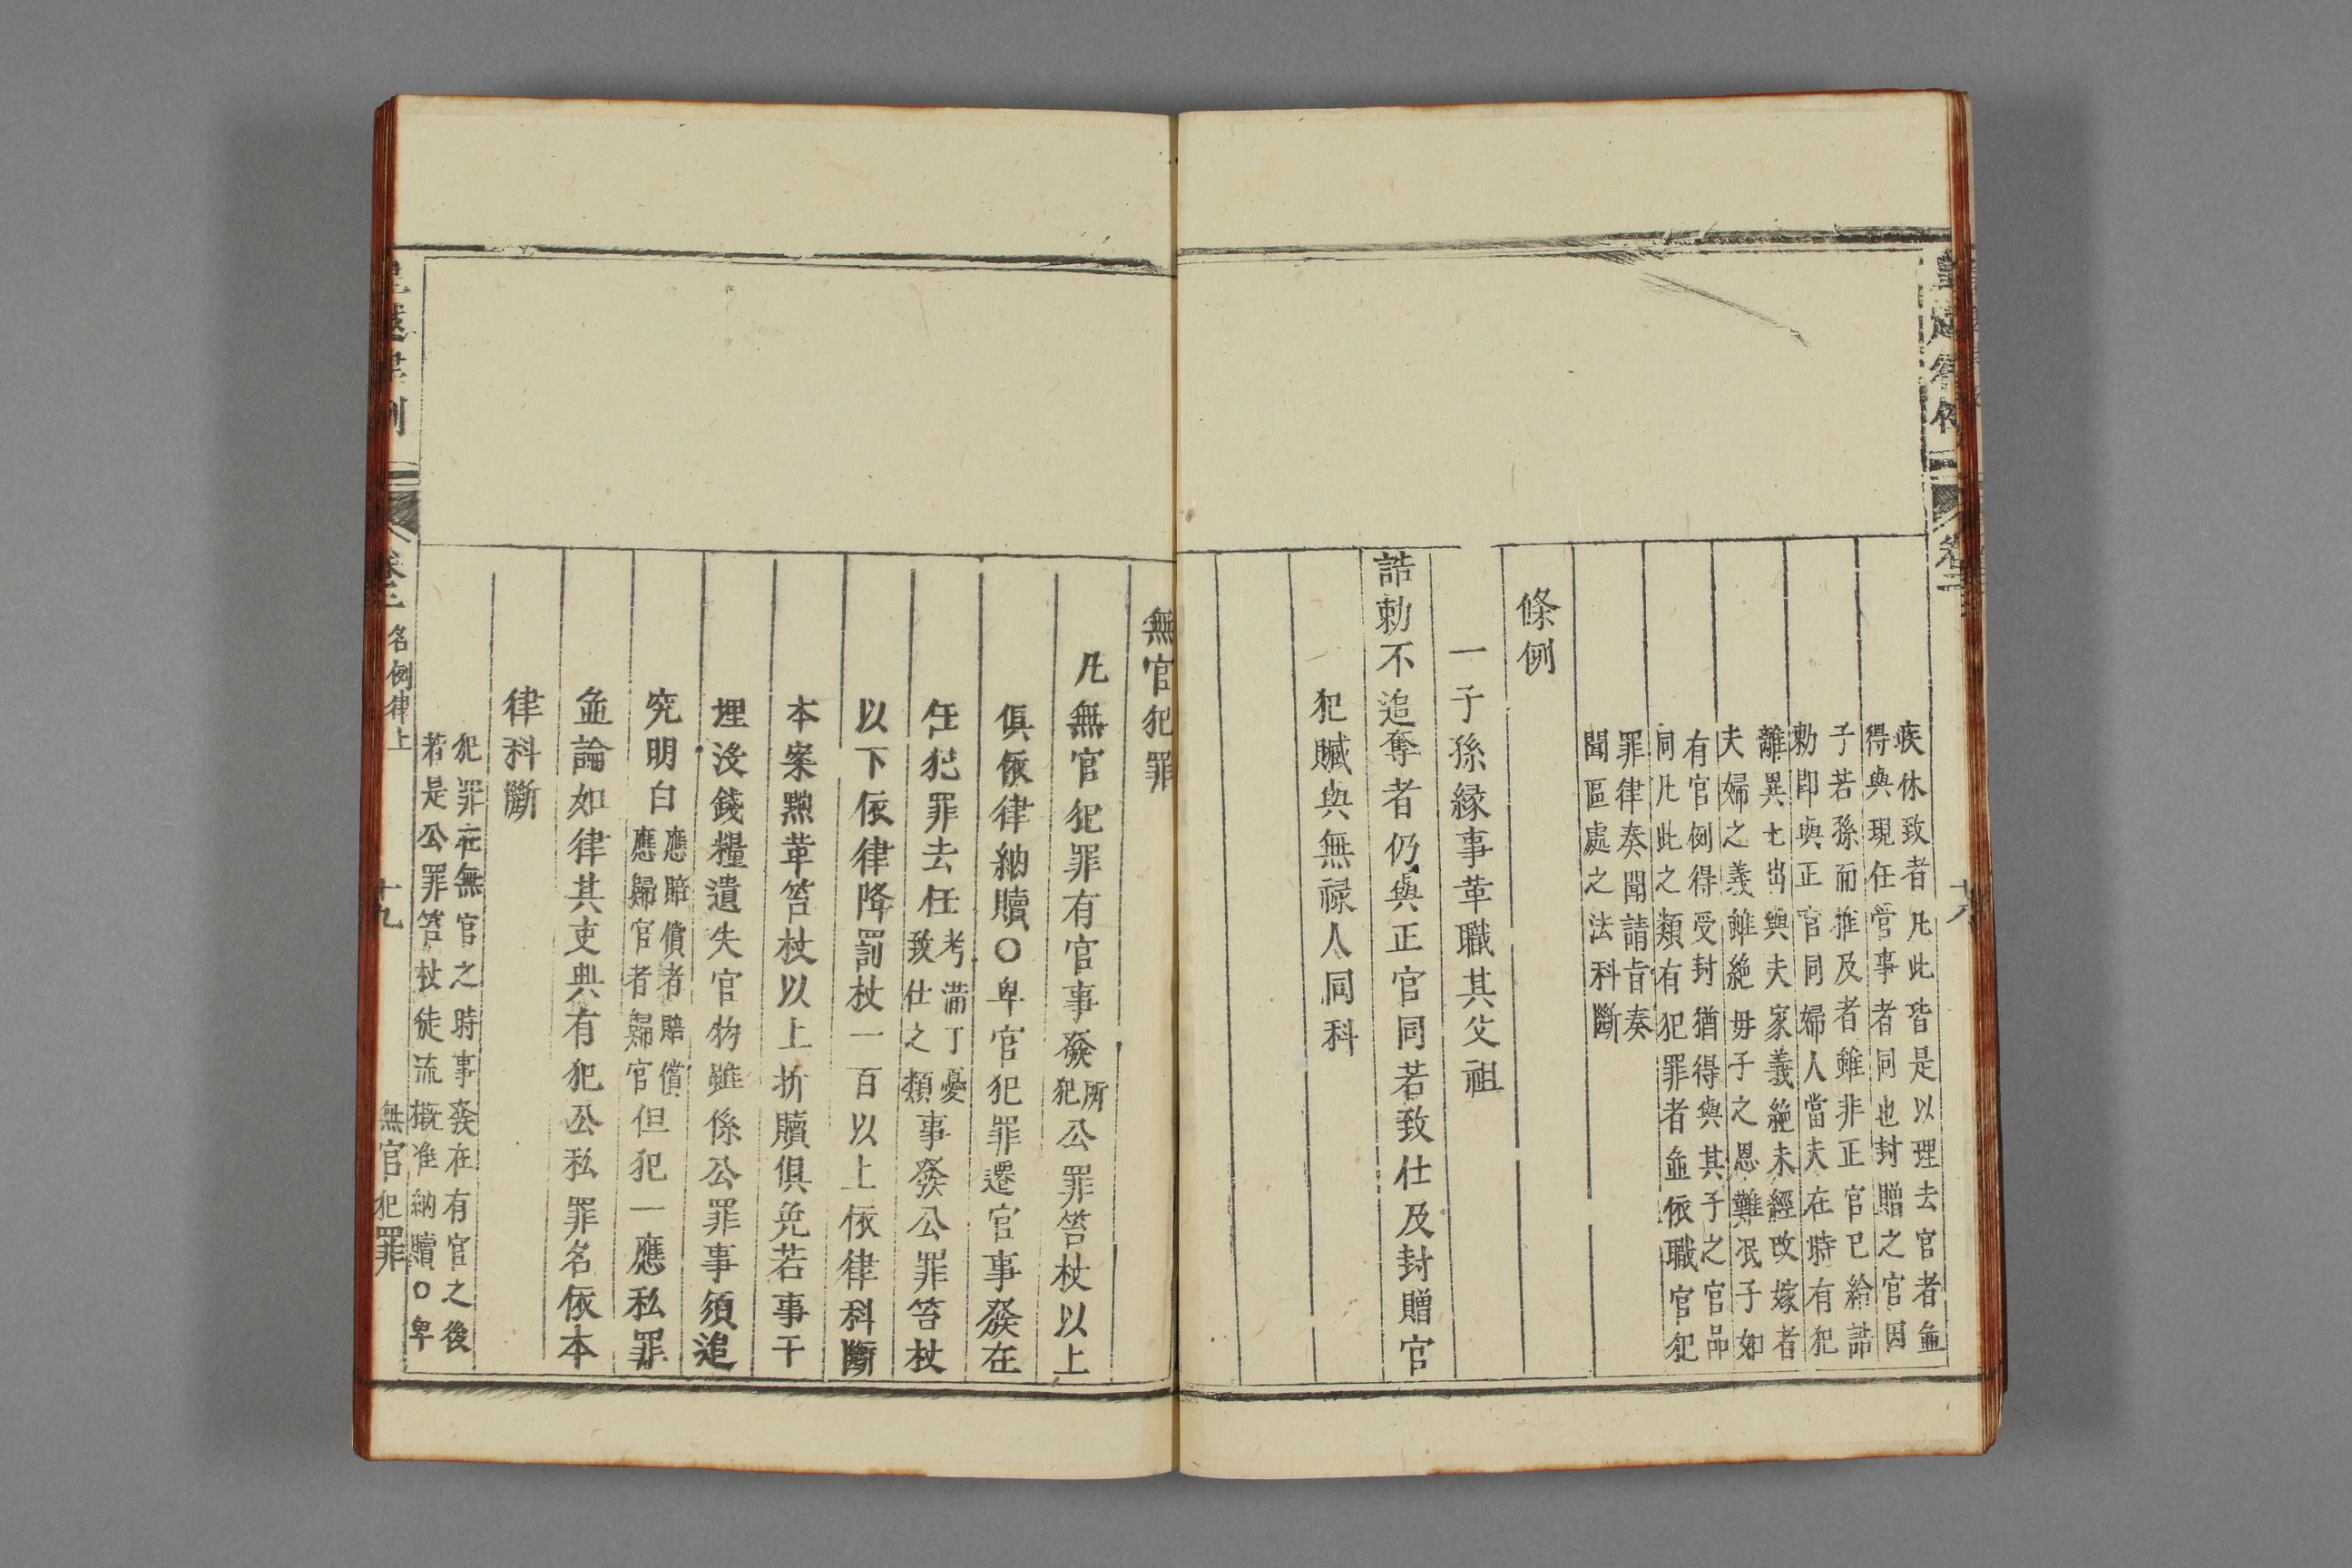 皇越律例
卷二
十八
疾休致者凡此皆是以理去官者並
得與現任管事者同也封贈之官因
子若孫而推及者雖非正官已給誥
勅即與正官同婦人當夫在時有犯
離異七出與夫家義絶未經改嫁者
夫婦之義雖絶毋子之恩難泯子如
有官例得受封猶得與其子之官品
同凡此之類有犯罪者並依職官犯
罪律奏聞請旨奏
聞區處之法科斷
條例
一子孫緣事革職其父祖
誥勅不追奪者仍與正官同若致仕及封贈官
犯贓與無祿人同科
無官犯罪
凡無官犯罪有官事發所犯公罪笞杖以上
俱依律納贖○卑官犯罪遷官事發在
任犯罪去任考滿丁憂致仕之類事發公罪笞杖
以下依律降罰杖一百以上依律科斷
本案黜革笞杖以上折贖俱免若事干
埋沒錢糧遺失官物雖係公罪事須追
究明白應賠償者賠償應歸官者歸官但犯一應私罪
並論如律其吏典有犯公私罪名依本
律科斷
犯罪在無官之時事發在有官之後
若是公罪笞杖徒流概准納贖○卑
皇越律例
卷二
名例律上
十九
無官犯罪